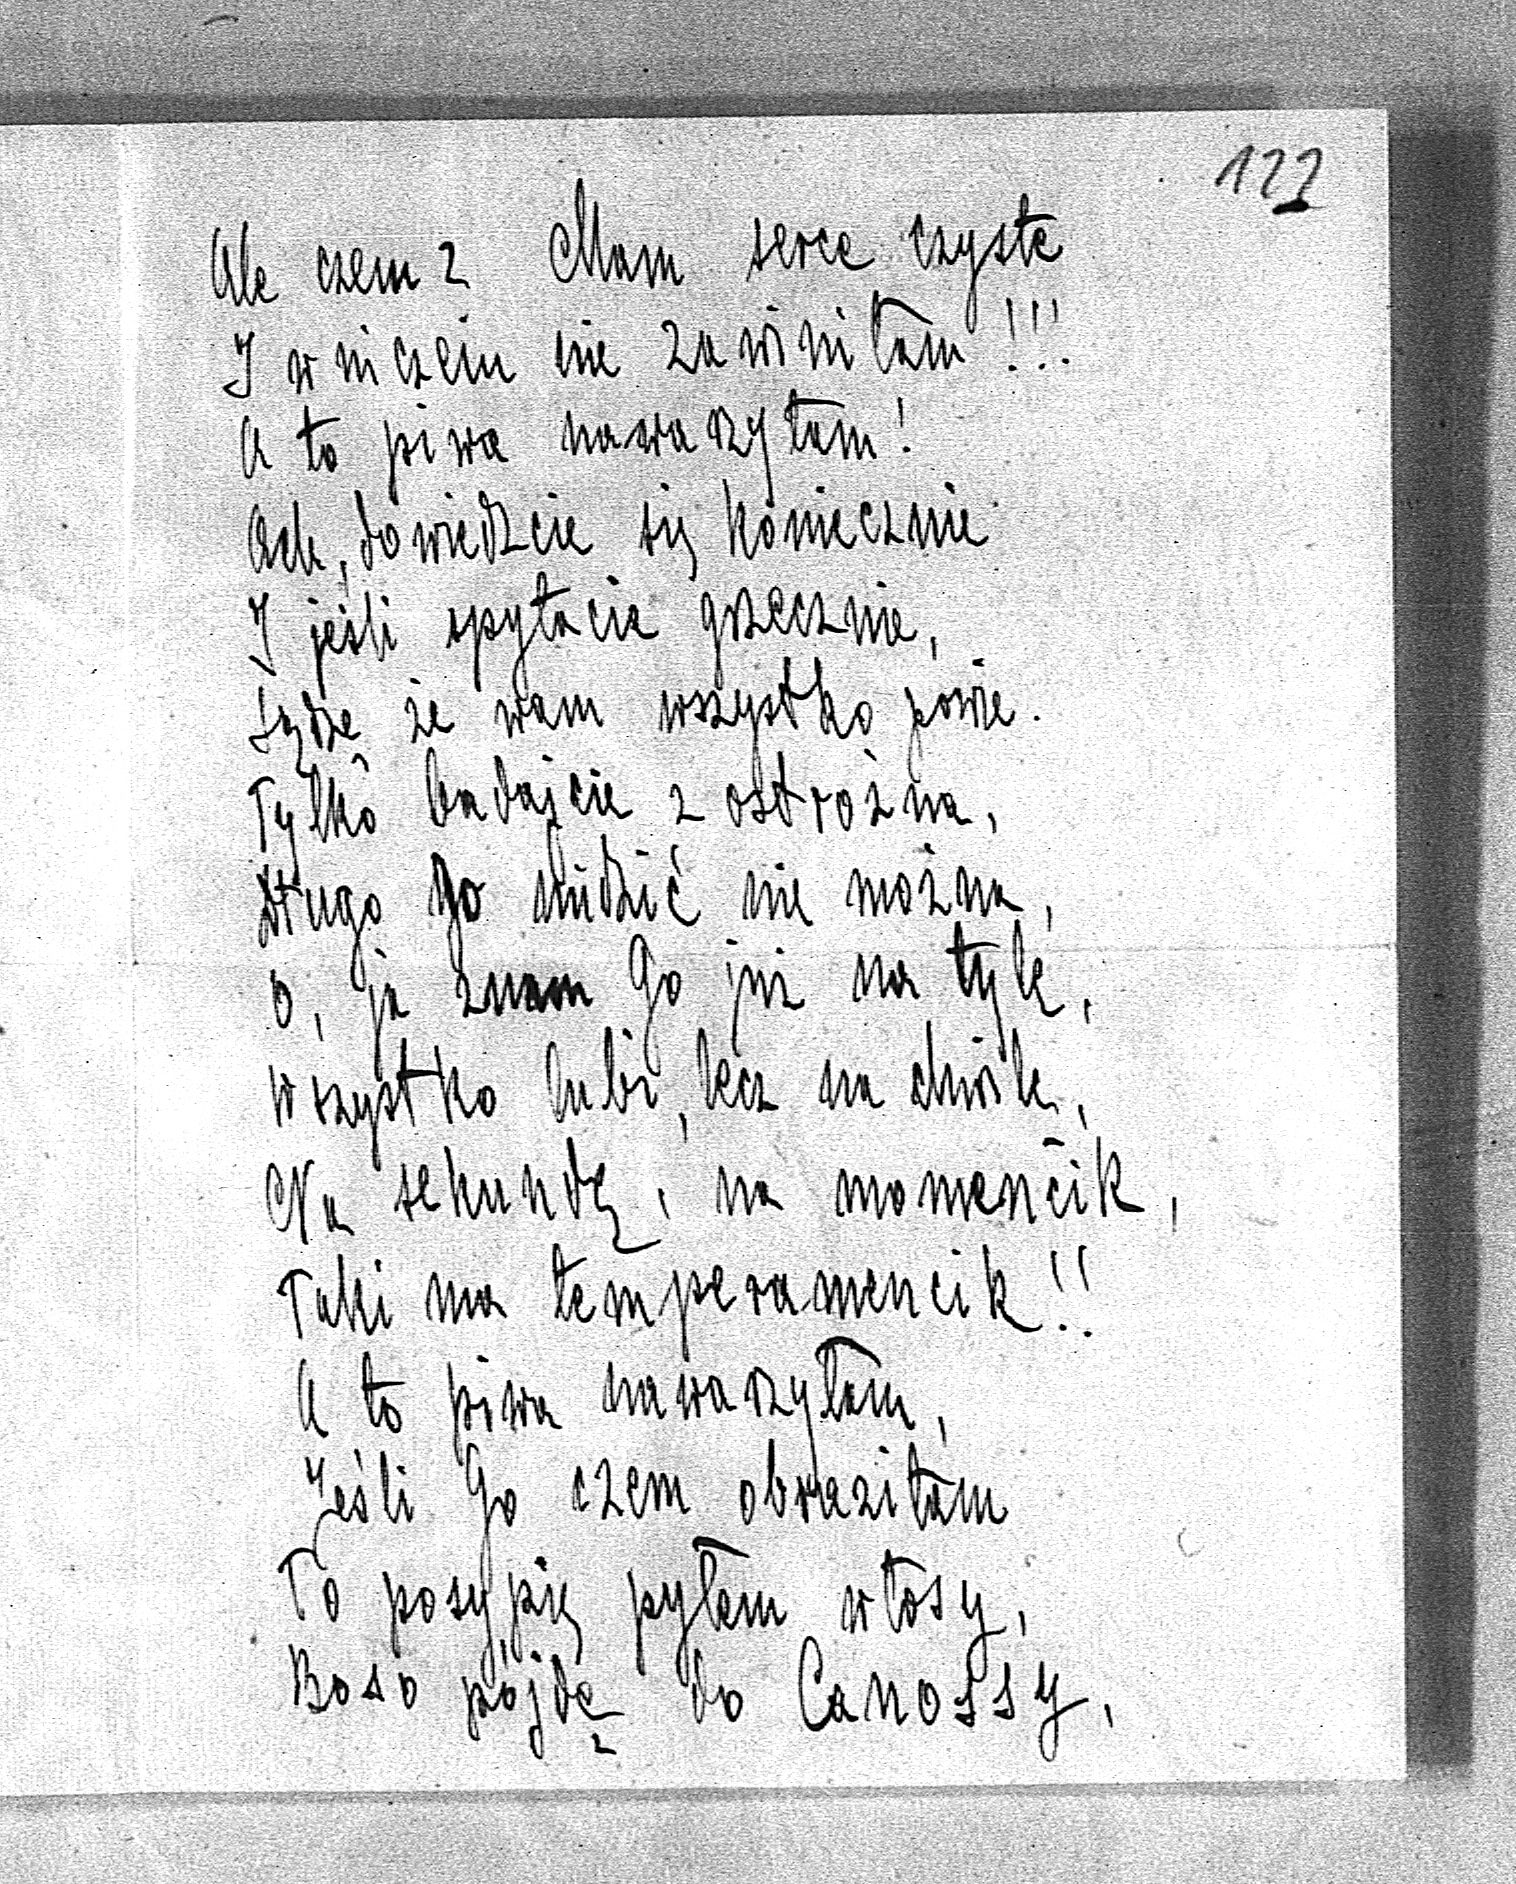 122
Ale czem? Mam serce czyste
I w niczem nie zawiniłam!!!
A to piwa nawarzyłam!
Ach, dowiedzcie się koniecznie
I jeśli spytacie grzecznie,
Sądzę że wam wszystko powie.
Tylko badajcie z ostrożna,
Długo Go nudzić nie można,
O, ja znam Go już na tyle,
Wszystko lubi, lecz na chwilę,
Na sekundę, na momencik,
Taki ma temperamencik!!
A to piwa nawarzyłam,
Jeśli Go czem obraziłam
To posypię pyłem włosy,
Boso pójdę do Canossy,